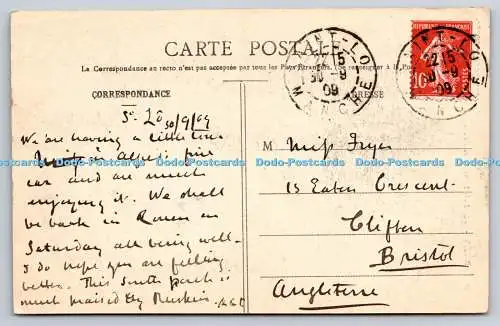 CARTE POSTALE
La Correspondance au recto n'est pas acceptée par tous les Pays Étrangers. (Se renseigner à la Poste)
CORRESPONDANCE
ADRESSE
SAINT-LO
22 15
30 -9
09
MANCHE
RÉPUBLIQUE FRANÇAISE
10
POSTES
St Lô 30/9/09
We are having a little tour
in Alfred's fine
car and are much
enjoying it. We shall
be back in Rouen on
Saturday all being well.
I do hope you are feeling
better. This South porch is
much praised by Ruskin.
M Miss Fryer
15 Eaton Crescent
Clifton
Bristol
Angleterre
Dodo-Postcards Dodo-Postcards Dodo-Postcards Dodo-Postcards